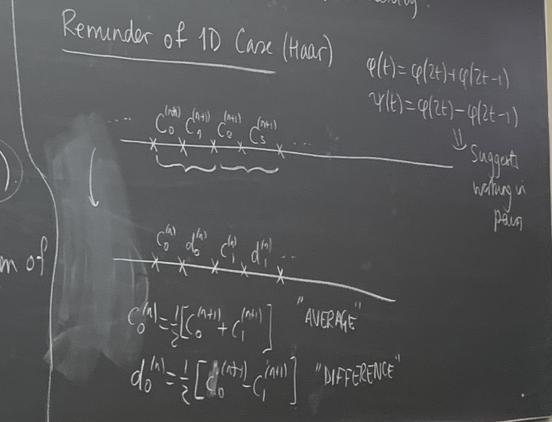 Reminder of 1D Case (Haar)
φ(t)=φ(2t)+φ(2t-1)
ψ(t)=φ(2t)-φ(2t-1)
⇓
Suggests
working in
pairs
.... C₀⁽ⁿ⁺¹⁾ C₁⁽ⁿ⁺¹⁾ C₂⁽ⁿ⁺¹⁾ C₃⁽ⁿ⁺¹⁾ ...
).
m of
C₀⁽ⁿ⁾ d₀⁽ⁿ⁾ C₁⁽ⁿ⁾ d₁⁽ⁿ⁾ ...
C₀⁽ⁿ⁾=½[C₀⁽ⁿ⁺¹⁾+C₁⁽ⁿ⁺¹⁾] "AVERAGE"
d₀⁽ⁿ⁾=½[C₀⁽ⁿ⁺¹⁾-C₁⁽ⁿ⁺¹⁾] "DIFFERENCE"